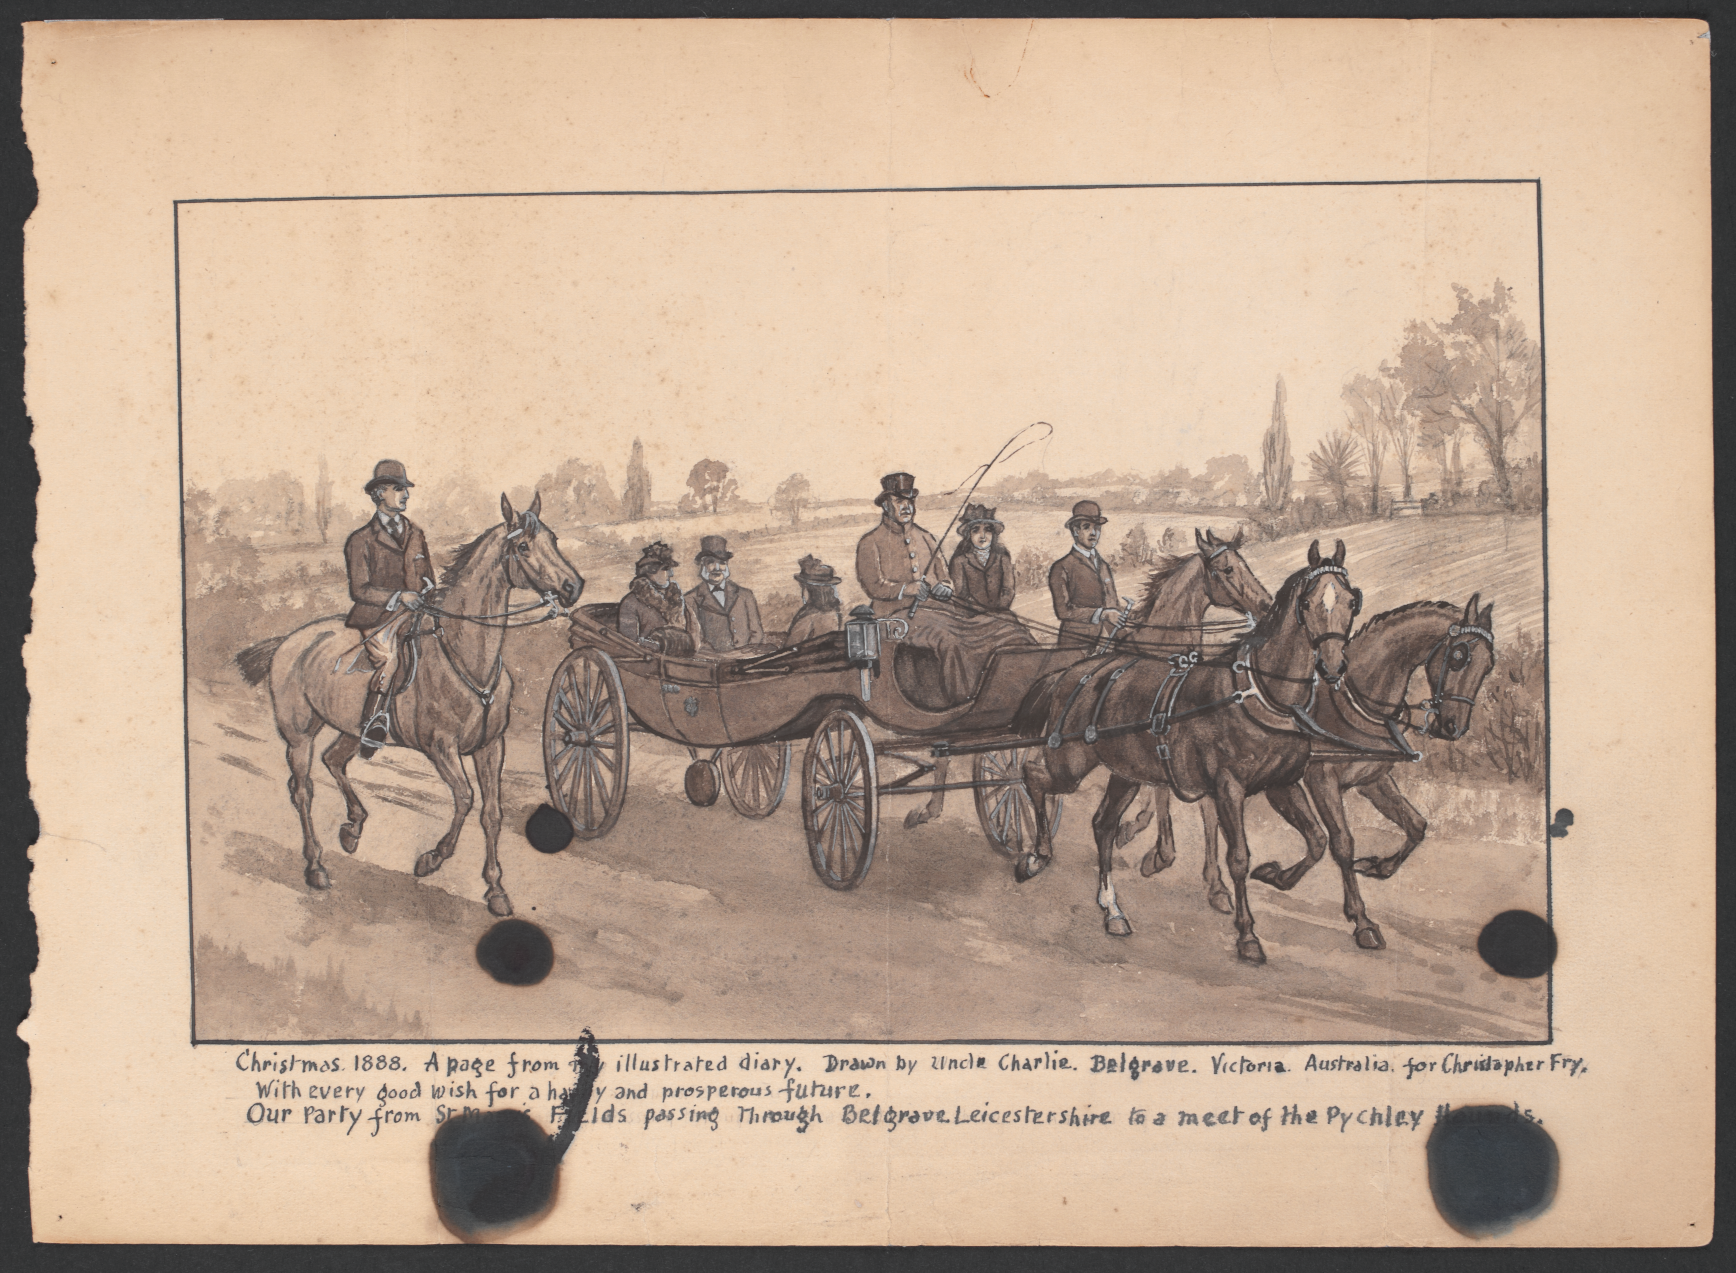 Christmas. 1888. A page from my illustrated diary. Drawn by Uncle Charlie. Belgrave. Victoria. Australia. for Christopher Fry.
With every good wish for a happy and prosperous future.
Our Party from Fields passing Through Belgrave Leicestershire to a meet of the Pychley Hounds.